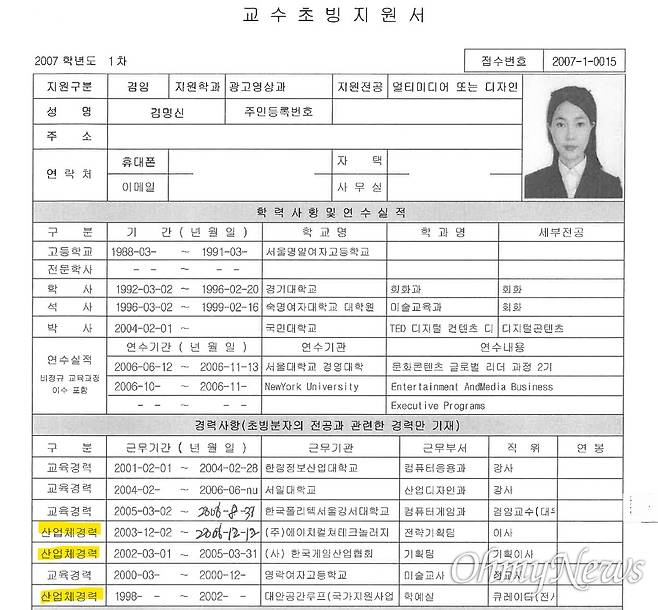 교수초빙지원서
2007 학년도 1차 접수번호 2007-1-0015
지원구분 겸임 지원학과 광고영상과 지원전공 멀티미디어 또는 디자인
성 명 김명신 주민등록번호
주 소
연락처 휴대폰 자 택
이메일 사무실
학력사항및연수실적
구 분 기 간 ( 년 월 일 ) 학 교 명 학 과 명 세부전공
고등학교 1988-03- ~ 1991-03- 서울명일여자고등학교
전문학사 - - ~ - -
학 사 1992-03-02 ~ 1996-02-20 경기대학교 회화과 회화
석 사 1996-03-02 ~ 1999-02-16 숙명여자대학교 대학원 미술교육과 회화
박 사 2004-02-01 ~ 국민대학교 TED 디지털 컨텐츠 디 디지털콘텐츠
연수실적 비정규 교육과정 이수 포함 연수기간 ( 년 월 일 ) 연수기관 연수내용
2006-06-12 ~ 2006-11-13 서울대학교 경영대학 문화콘텐츠 글로벌 리더 과정 2기
2006-10- ~ 2006-11- NewYork University Entertainment AndMedia Business
- - ~ - - Executive Programs
경력사항(초빙분자의 전공과 관련한 경력만 기재)
구 분 근무기간 ( 년 월 일 ) 근무기관 근무부서 직 위 연 봉
교육경력 2001-02-01 ~ 2004-02-28 한림정보산업대학교 컴퓨터응용과 강사
교육경력 2004-02- ~ 2006-06-nu 서일대학교 산업디자인과 강사
교육경력 2005-03-02 ~ 2006-8-31 한국폴리텍서울강서대학교 컴퓨터게임과 겸임교수(대우
산업체경력 2003-12-02 ~ 2006-12-12 (주)에이치컬쳐테크놀러지 전략기획팀 이사
산업체경력 2002-03-01 ~ 2005-03-31 (사) 한국게임산업협회 기획팀 기획이사
교육경력 2000-03- ~ 2000-12- 영락여자고등학교 미술교사 정교사
산업체경력 1998- - ~ 2002- - 대안공간루프(국가지원사업 학예실 큐레이터(전시
OhmyNews